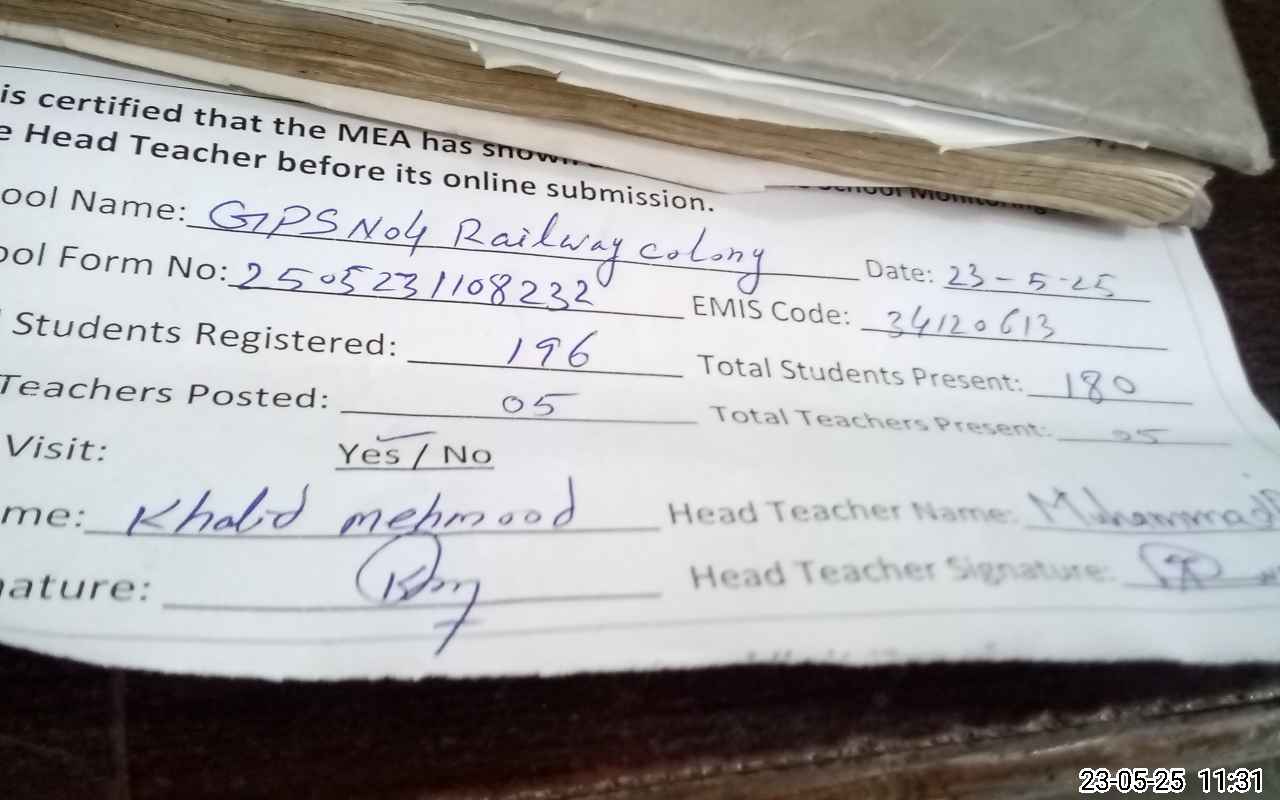 is certified that the MEA has shown
e Head Teacher before its online submission.
School Monitoring
ool Name: GPS No4 Railway colony Date: 23-5-25
ool Form No: 2505231108232 EMIS Code: 34120613
Students Registered: 196 Total Students Present: 180
Teachers Posted: 05 Total Teachers Present: 05
Visit: Yes / No
me: Khalid mehmood Head Teacher Name: Muhammad
nature: Head Teacher Signature:
23-05-25 11:31